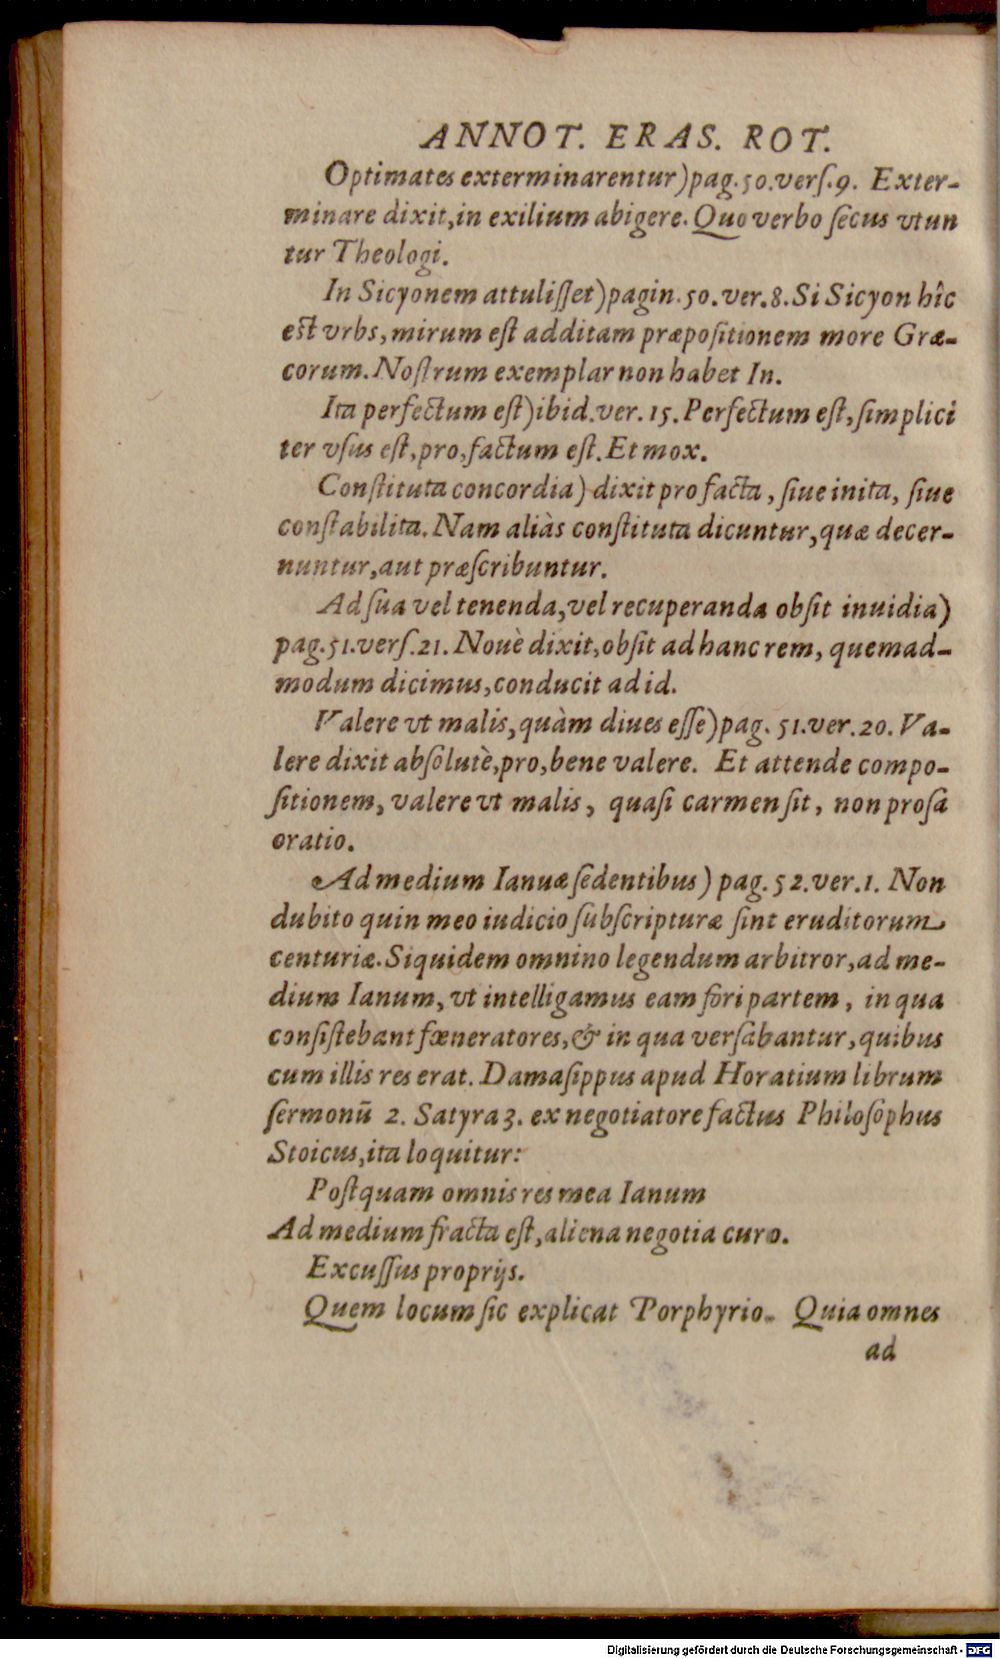 ANNOT. ERAS. ROT.
Optimates exterminarentur)pag.50.verſ.9. Exter-
minare dixit,in exilium abigere. Quo verbo ſecus vtun
tur Theologi.
In Sicyonem attuliſſet)pagin.50.ver.8.Si Sicyon hîc
eſt vrbs,mirum eſt additam præpoſitionem more Græ-
corum.Noſtrum exemplar non habet In.
Ita perfectum eſt)ibid.ver. 15. Perfectum eſt,ſimplici
ter vſus eſt,pro,factum eſt.Et mox.
Conſtituta concordia) dixit pro facta, ſiue inita, ſiue
conſtabilita.Nam aliàs conſtituta dicuntur,quæ decer-
nuntur,aut præſcribuntur.
Ad ſua vel tenenda,vel recuperanda obſit inuidia)
pag.51.verſ.21.Nouè dixit,obſit ad hanc rem, quemad-
modum dicimus,conducit ad id.
Valere vt malis,quàm diues eſſe)pag. 51.ver.20. Va-
lere dixit abſolutè,pro,bene valere. Et attende compo-
ſitionem, valere vt malis, quaſi carmen ſit, non proſa
oratio.
Ad medium Ianuæ ſedentibus) pag. 52.ver.1. Non
dubito quin meo iudicio ſubſcripturæ ſint eruditorum
centuriæ.Siquidem omnino legendum arbitror,ad me-
dium Ianum,vt intelligamus eam fori partem, in qua
conſiſtebant fœneratores,& in qua verſabantur,quibus
cum illis res erat. Damaſippus apud Horatium librum
ſermonū 2. Satyra 3. ex negotiatore factus Philoſophus
Stoicus,ita loquitur:
Poſtquam omnis res mea Ianum
Ad medium fracta eſt,aliena negotia curo.
Excuſſus proprijs.
Quem locum ſic explicat Porphyrio. Quia omnes
ad
Digitalisierung gefördert durch die Deutsche Forschungsgemeinschaft - DFG